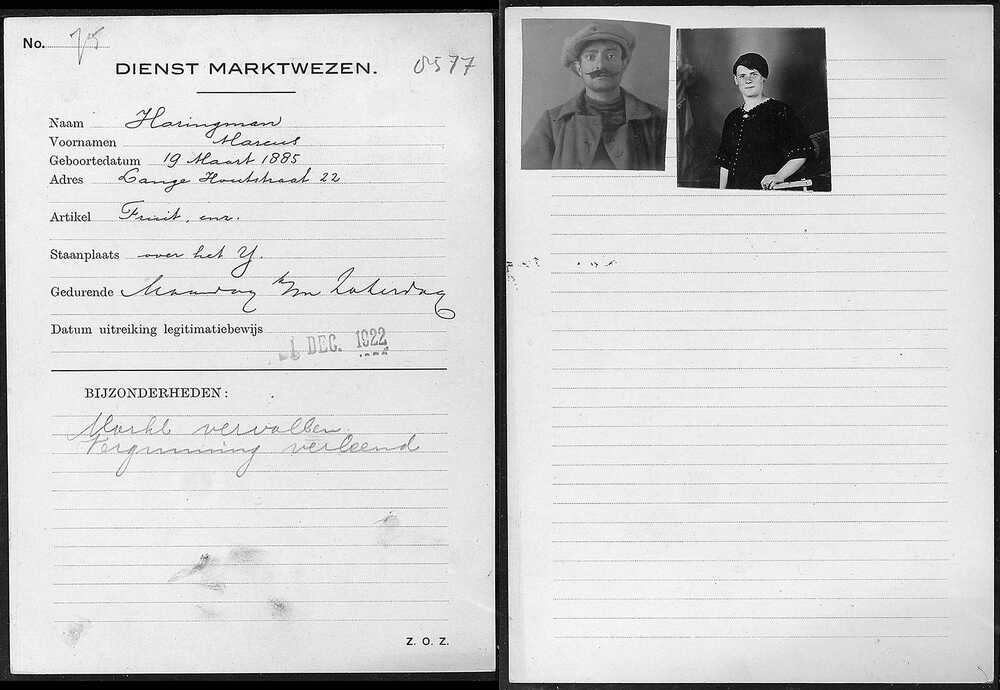 No. 75
DIENST MARKTWEZEN. 0577
Naam Haringman
Voornamen Marcus
Geboortedatum 19 Maart 1885
Adres Lange Houtstraat 22
Artikel Fruit, enz.
Staanplaats over het Y.
Gedurende Maandag t/m Zaterdag
Datum uitreiking legitimatiebewijs
1 DEC. 1922
BIJZONDERHEDEN:
Markt vervallen.
Vergunning verleend
Z. O. Z.